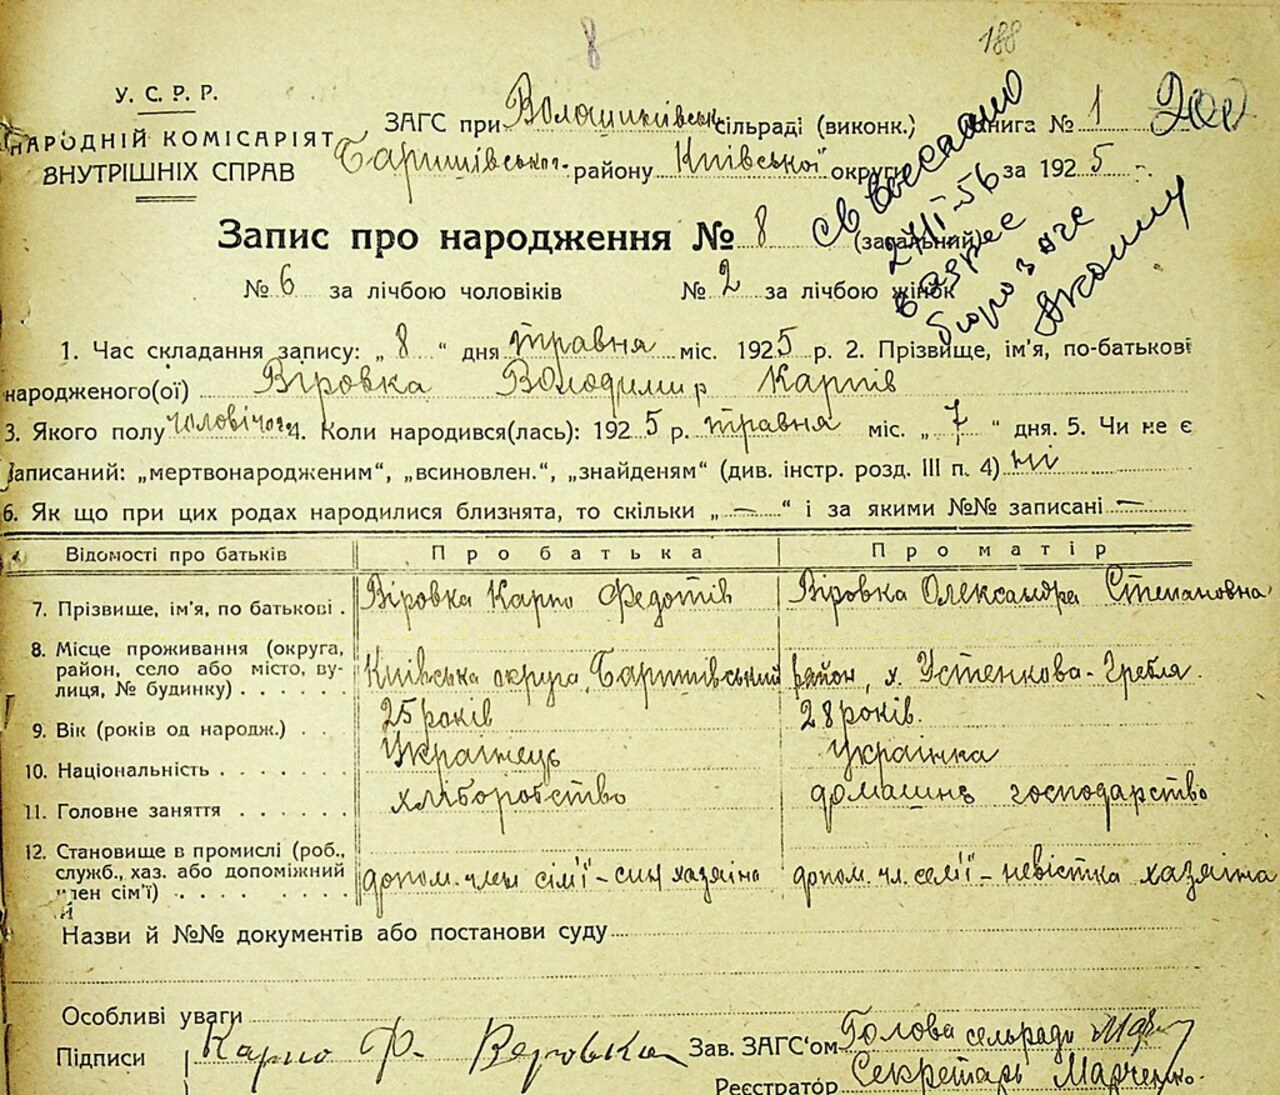 8
188
У. С. Р. Р.
НАРОДНІЙ КОМІСАРІЯТ
ВНУТРІШНІХ СПРАВ
ЗАГС при Волошинівськ. сільраді (виконк.) Книга № 1 200
Баришівського районy Київської округи за 1925
Запис про народження № 8 (загальний)
св выслано
2/VII-56
в адрес
бюро загс
№ 6 за лічбою чоловіків № 2 за лічбою жінок
1. Час складання запису: „ 8 “ дня травня міс. 1925 р. 2. Прізвище, ім'я, по-батькові
народженого(ої) Віровка Володимир Карпів
3. Якого полу чоловічого 4. Коли народився(лась): 1925 р. травня міс. „ 7 “ дня. 5. Чи не є
записаний: „мертвонародженим“, „всиновлен.“, „знайденям“ (див. інстр. розд. III п. 4) ні
6. Як що при цих родах народилися близнята, то скільки „ — “ і за якими №№ записані —
Відомості про батьків Про батька Про матір
7. Прізвище, ім'я, по батькові . Віровка Карпо Федотів Віровка Олександра Степановна
8. Місце проживання (округа,
район, село або місто, ву-
лиця, № будинку) . . . . . . Київська округа, Баришівський район, х. Устенкова-Гребля.
9. Вік (років од народж.) . . 25 років 28 років.
10. Національність . . . . . . . Українець Українка
11. Головне заняття . . . . . . хліборобство домашнє господарство
12. Становище в промислі (роб.,
служб., хаз. або допоміжний
член сім'ї) . . . . . . . . допом. член сім'ї - син хазяїна допом. чл. семї - невістка хазяїна
Назви й №№ документів або постанови суду
Особливі уваги
Підписи Карпо Ф. Веровка Зав. ЗАГС'ом Голова сельради
Реєстратор Секретарь Марченко.